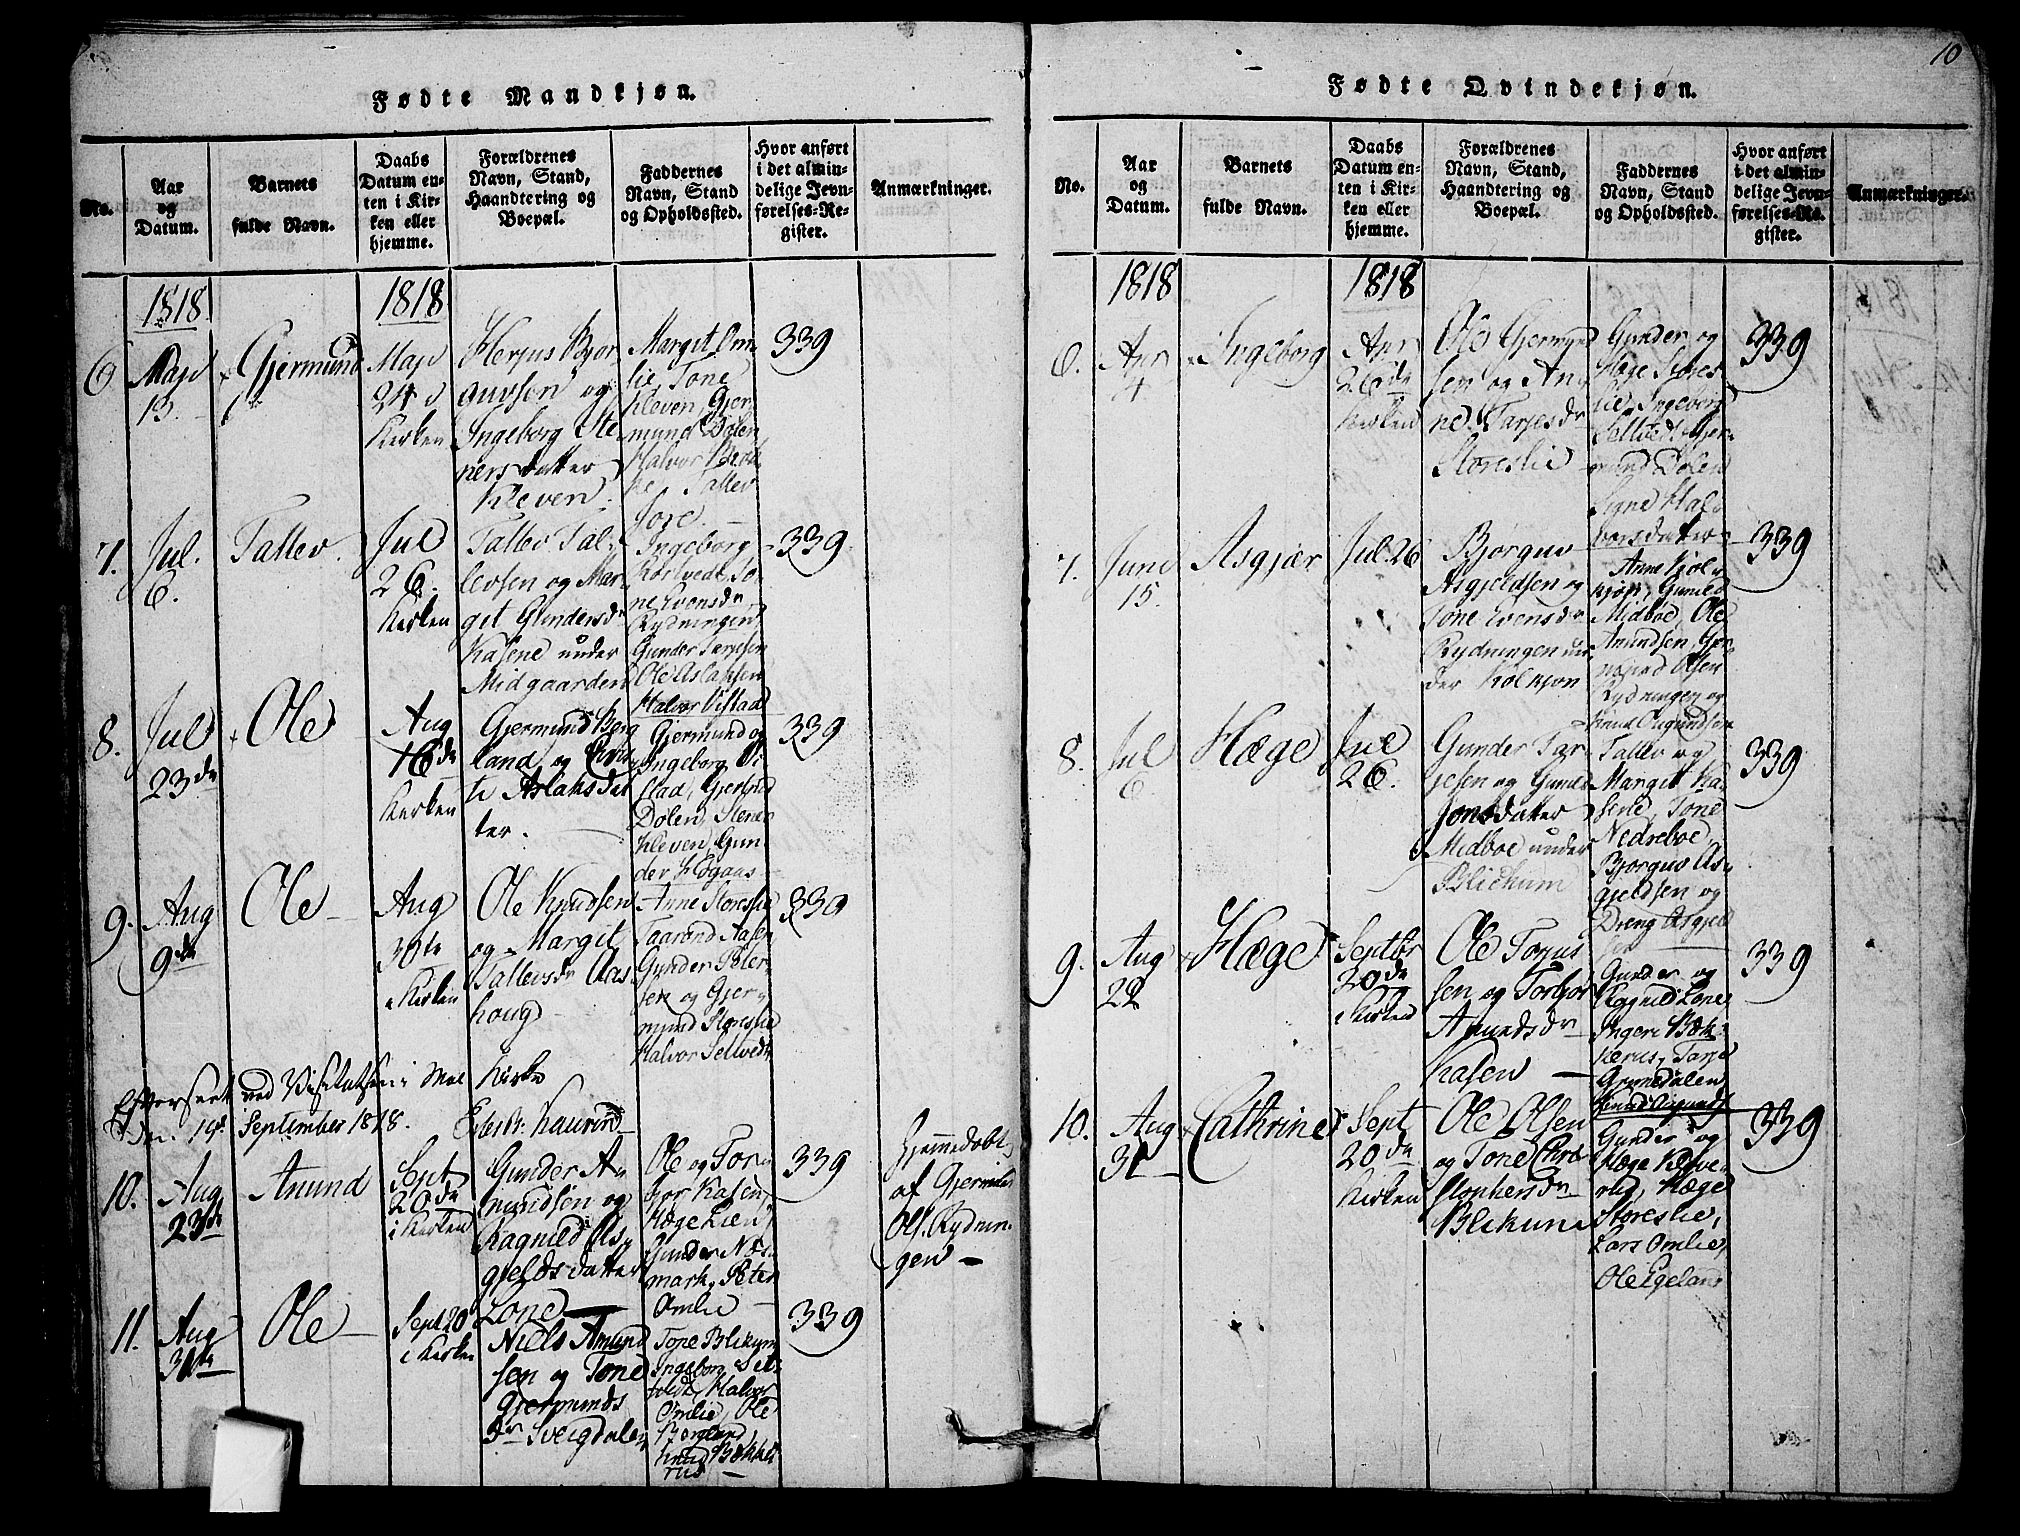 10
Fødte Mandkjøn.
No.
Aar
og
Datum.
Barnets
fulde Navn.
Daabs
Datum en-
ten i Kir-
ken eller
hjemme.
Forældrenes
Navn, Stand,
Haandtering og
Boepæl.
Faddernes
Navn, Stand
og Opholdssted.
Hvor anført
i det almin-
delige Jevn-
førelses-Re-
gister.
Anmærkninger.
1818.
1818
6
Maji
13.
Gjermund
Maji
24
Kirken
Herjus Bjor
guvsen og
Ingeborg Ste
nersdatter
Kleven.
Margit Om
lie, Tone
Kleven, Gjer
mund Dolen
Halvor
Tallev
339
7.
Jul.
6.
Tallev.
Jul
26.
Kirken
Tallev Tal-
levsen og Mar-
git Gundersdr
Kasene under
Midgaarden
Ingeborg
ne Evensdr
Rydningen
Gunder Tarjesen
Ole Aslaksen
Halvor Vistad
339
8.
Jul
23de
Ole
Aug
16de
Kirken
Gjermund Berg
land og
Aslaksdat
ter.
Gjermund og
Ingeborg Vi
stad, Gjermund
Dolen, Stener
Kleven, Gun
der Høgaas
339
9.
Aug
9de
Ole
Aug
30te
i Kirken
Ole Knudsen
og Margit
Tallevsdr Aas
houg
Anne Storeslie
Taarånd Aasen
Gunder Peter
sen og Gjer
mund Storeslie
Halvor Sellvedt
339
Efterseet ved Visitatsen i Moe Kirke
Den 19de September 1818.
10.
Aug
23de
Anund
Sept
20de
i Kirken
Gunder A
nundsen og
Ragnild As
gjeldsdatter
Lone
Ole og Tor
bjor Kasen,
Hæge Lien,
Gunder Næs
mark, Peter
Omlie
339
Hjemmedøbt
af Gjermund
Ols. Rydnin
gen
11.
Aug
31te
Ole
Sept 20
i Kirken
Niels Amund
sen og Tone
Gjermunds
dr Sveigdalen
Tone Blikum
Ingeborg Sel
Halvor
Omlie, Ole
Bergland,
Knud Bække
rus
339
Fødte Qvindekjøn.
No.
Aar
og
Datum.
Barnets
fulde Navn.
Daabs
Datum en-
ten i Kir-
ken eller
hjemme.
Forældrenes
Navn, Stand,
Haandtering og
Boepæl.
Faddernes
Navn, Stand
og Opholdssted.
Hvor anført
i det almin-
delige Jevn-
førelses-Re-
gister.
Anmærkninger.
1818
1818
6.
Apr
4
Ingeborg
Apr
26de
Kirken
Ole Gjermund
sen og An
ne Tarjesdr
Storeslie
Gunder og
Hæge Stores
lie, Ingeborg
Sellvedt, Gjer
mund Dolen
Signe Hal
vorsdatter
339
7.
Juni
15.
Asgjær
Jul 26
Bjorguv
Asgjeldsen og
Tone Evensdr
Rydningen un
der Kolkjøn
Anne Kjol
kjøn, Gunild
Midboe, Ole
Anundsen, Gjer
mund Olsen
Rydningen og
339
8.
Jul
6.
Hæge
Jul
26.
Gunder Tar
jesen og Gunild
Jonsdatter
Midboe under
Blichum
Tallev og
Margit Ka
sene, Tone
Nedreboe,
Bjorguv As
gjeldsen og
Dreng Asgjeld
sen
339
9.
Aug
22
Hæge
Septbr
20de
i Kirken
Ole Torjus
sen og Torbjor
Anundsdr
Kasen
Gunder og
Ragnild Lone
Ingeri Bæk
kerus, Tarje
Grunedalen
339
10.
Aug
31
Cathrine
Sept
20de
Kirken
Ole Olsen
og Tone Chri
stophersdr
Blikum
Gunder og
Hæge
Hæge
Storeslie,
Lars Omlie,
Ole Egeland
339